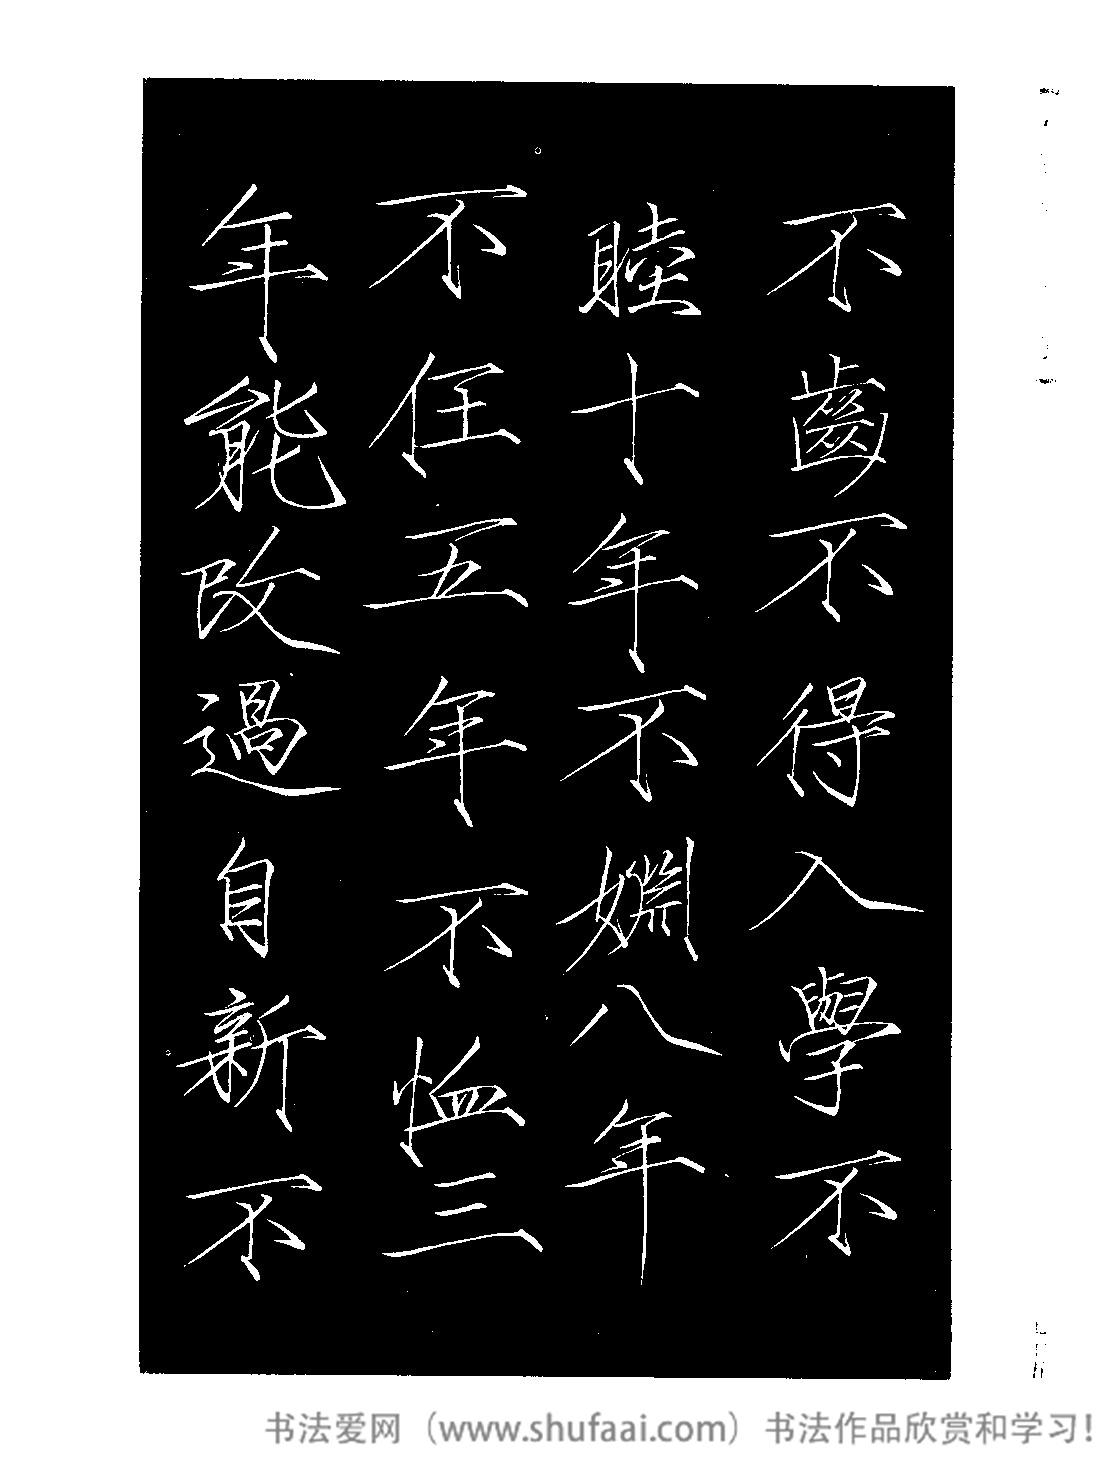 不齒不得入學不
睦十年不婣八年
不任五年不恤三
年能改過自新不
书法爱网（www.shufaai.com）书法作品欣赏和学习！